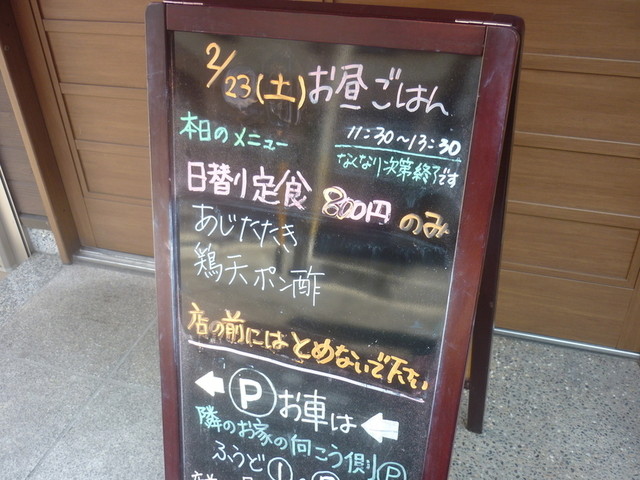 2/23(土)お昼ごはん
本日のメニュー
11:30〜13:30
なくなり次第終了です
日替り定食 800円 のみ
あじたたき
鶏天ポン酢
店の前にはとめないで下さい
←Ⓟお車は←
隣のお家の向こう側Ⓟ
ふうど①